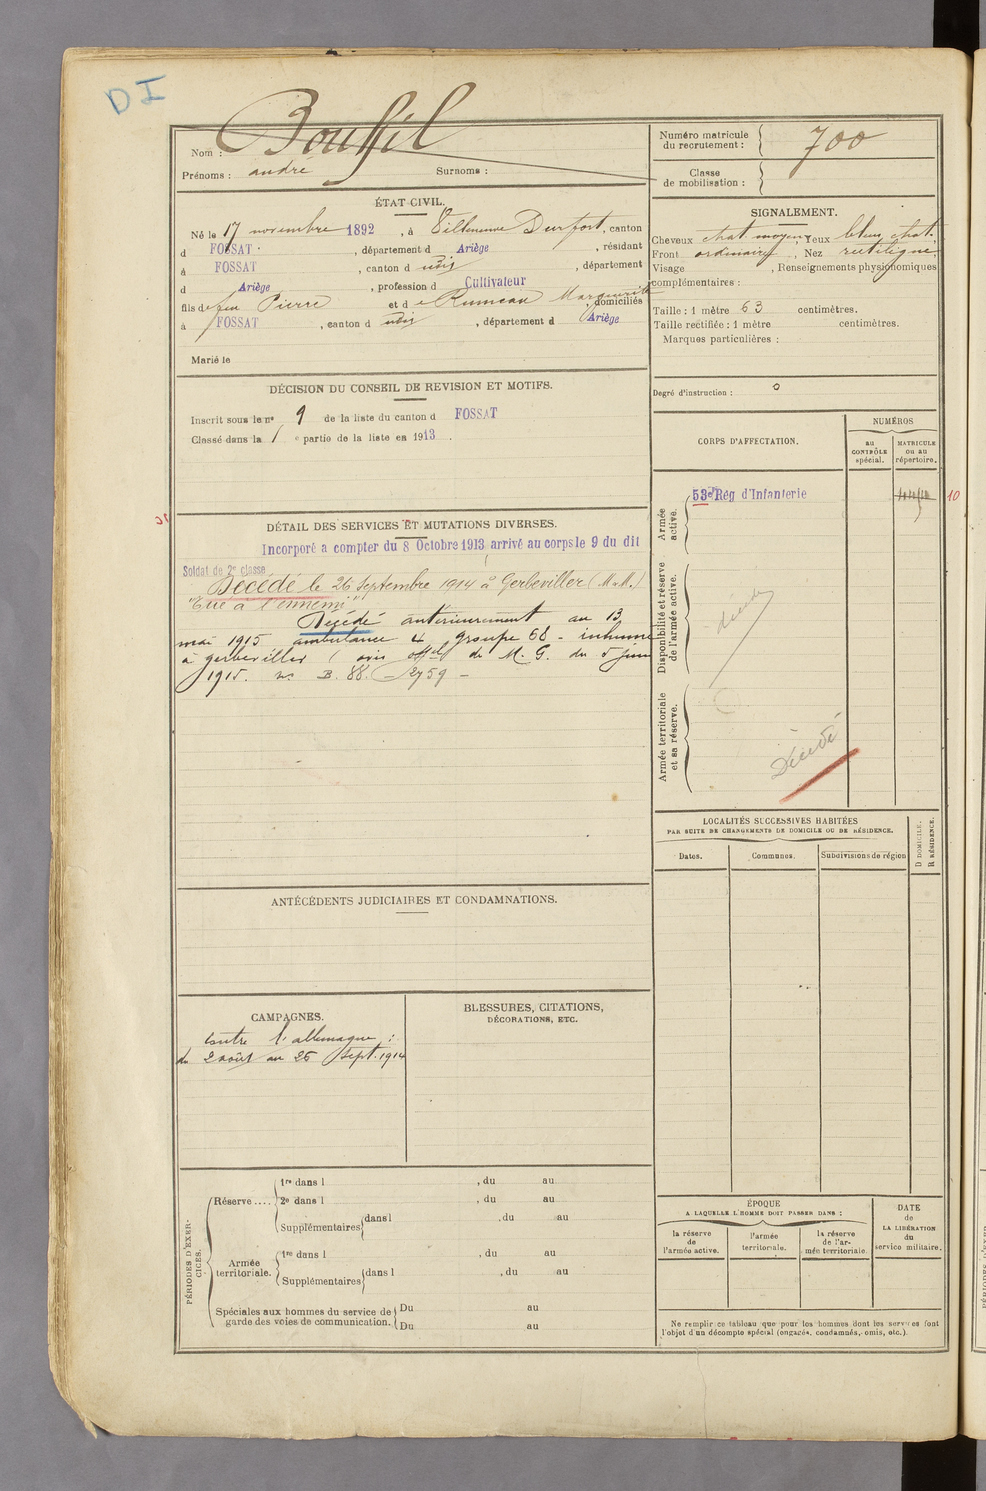 DI
Nom : Bouffil
Prénoms : andré Surnoms :
Numéro matricule du recrutement : 700
Classe de mobilisation :
ÉTAT CIVIL.
Né le 17 novembre 1892, à Villeneuve Durfort, canton
d FOSSAT, département d Ariège, résidant
à FOSSAT, canton d udis, département
d Ariège, profession d Cultivateur
fils de feu Pierre et d e Rumeau Marguerite domiciliés
à FOSSAT, canton d udis, département d Ariège
Marié le
SIGNALEMENT.
Cheveux chat moyen, Yeux bleus chat.
Front ordinaire, Nez rectiligne
Visage , Renseignements physionomiques
complémentaires :
Taille : 1 mètre 63 centimètres.
Taille rectifiée : 1 mètre centimètres.
Marques particulières :
Degré d'instruction : 0
DÉCISION DU CONSEIL DE REVISION ET MOTIFS.
Inscrit sous le nº 9 de la liste du canton d FOSSAT
Classé dans la 1 e partie de la liste en 1913.
CORPS D'AFFECTATION.
NUMÉROS
au CONTRÔLE spécial.
MATRICULE ou au répertoire.
Armée active.
53e Rég d'Infanterie
10
Disponibilité et réserve de l'armée active.
décédé
Armée territoriale et sa réserve.
Décédé
DÉTAIL DES SERVICES ET MUTATIONS DIVERSES.
Incorporé a compter du 8 Octobre 1913 arrivé au corps le 9 du dit
Soldat de 2e classe
Décédé le 26 Septembre 1914 à Gerbeviller (M.M.)
"Tué à l'ennemi"
Décédé antérieurement au 13
mai 1915 ambulance 4 groupe 68 - inhumé
a gerbeviller ( avis offel de M. G. du 5 juin
1915. nº B. 88. - 2759 -
LOCALITÉS SUCCESSIVES HABITÉES
PAR SUITE DE CHANGEMENTS DE DOMICILE OU DE RÉSIDENCE.
Dates. Communes. Subdivisions de région
D DOMICILE.
R RÉSIDENCE.
ANTÉCÉDENTS JUDICIAIRES ET CONDAMNATIONS.
CAMPAGNES.
contre l'allemagne :
du 2 août au 26 Sept. 1914
BLESSURES, CITATIONS,
DÉCORATIONS, ETC.
PÉRIODES D'EXERCICES.
Réserve....
1re dans l , du au
2e dans l , du au
Supplémentaires dans l , du au
Armée territoriale.
1re dans l , du au
Supplémentaires dans l , du au
Spéciales aux hommes du service de garde des voies de communication.
Du au
Du au
ÉPOQUE
A LAQUELLE L'HOMME DOIT PASSER DANS :
la réserve de l'armée active.
l'armée territoriale.
la réserve de l'armée territoriale.
DATE de LA LIBÉRATION du service militaire.
Ne remplir ce tableau que pour les hommes dont les services font
l'objet d'un décompte spécial (engagés, condamnés, omis, etc.).